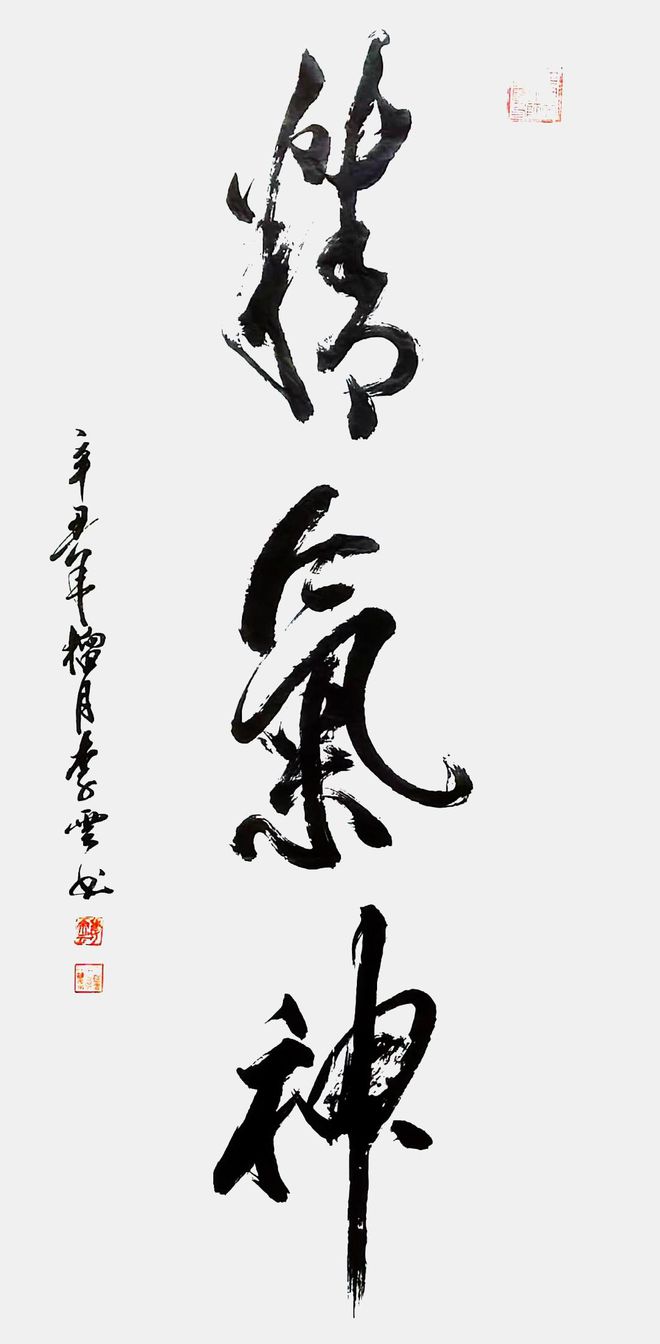 精氣神
辛丑年榴月李雲书